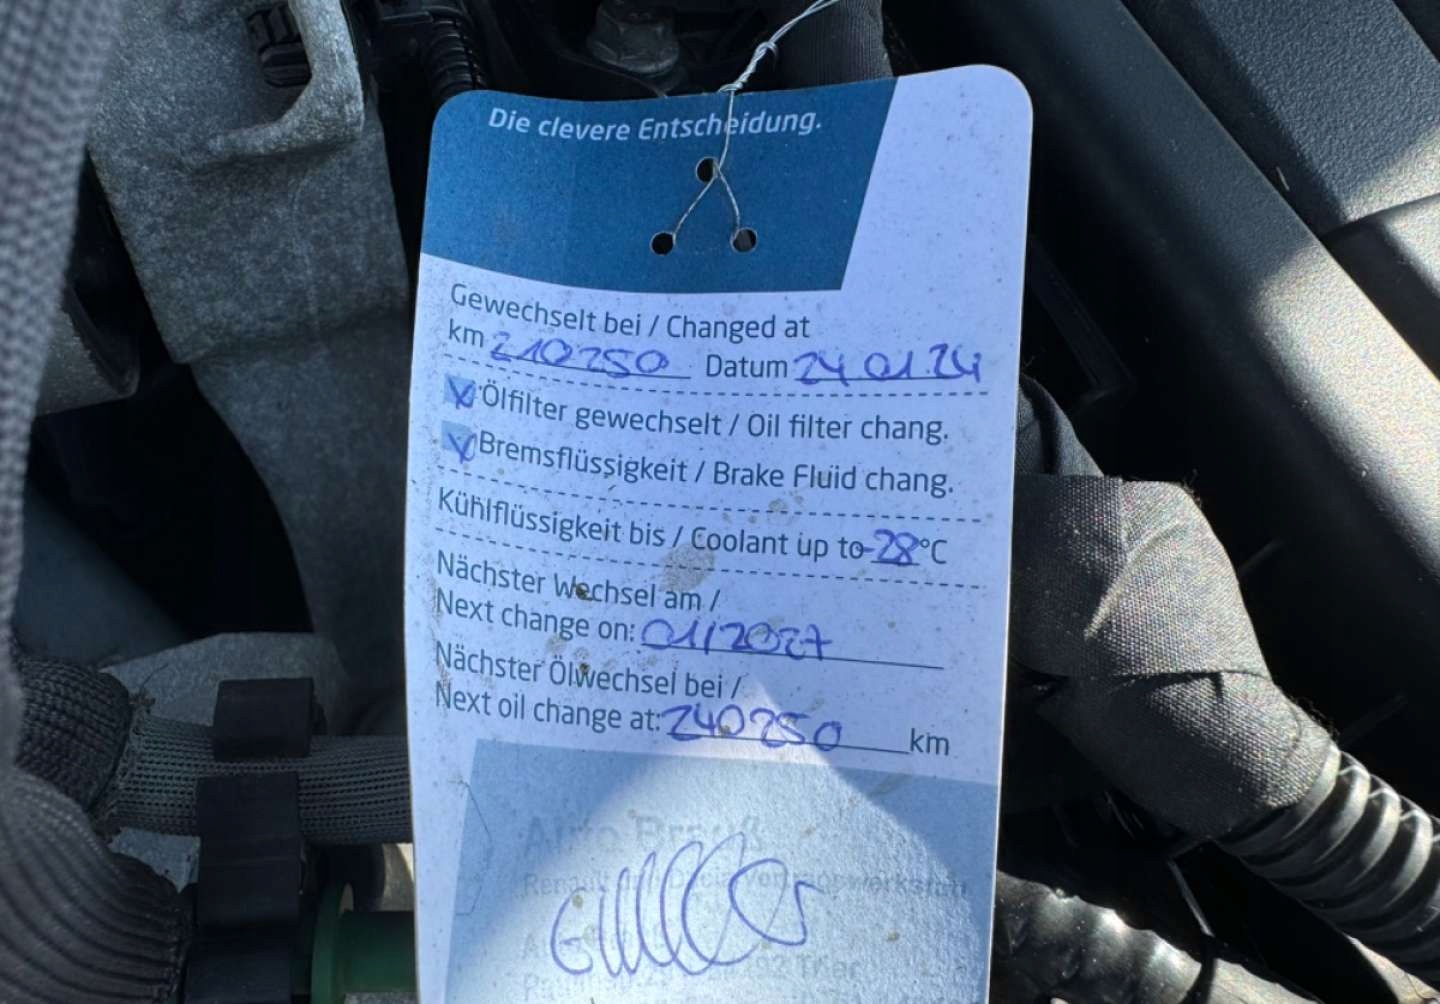 Die clevere Entscheidung.
Gewechselt bei / Changed at
km 210250 Datum 24.01.24
Ölfilter gewechselt / Oil filter chang.
Bremsflüssigkeit / Brake Fluid chang.
Kühlflüssigkeit bis / Coolant up to -28°C
Nächster Wechsel am /
Next change on: 01/2027
Nächster Ölwechsel bei /
Next oil change at: 240250 km
Auto
Renault
Trier